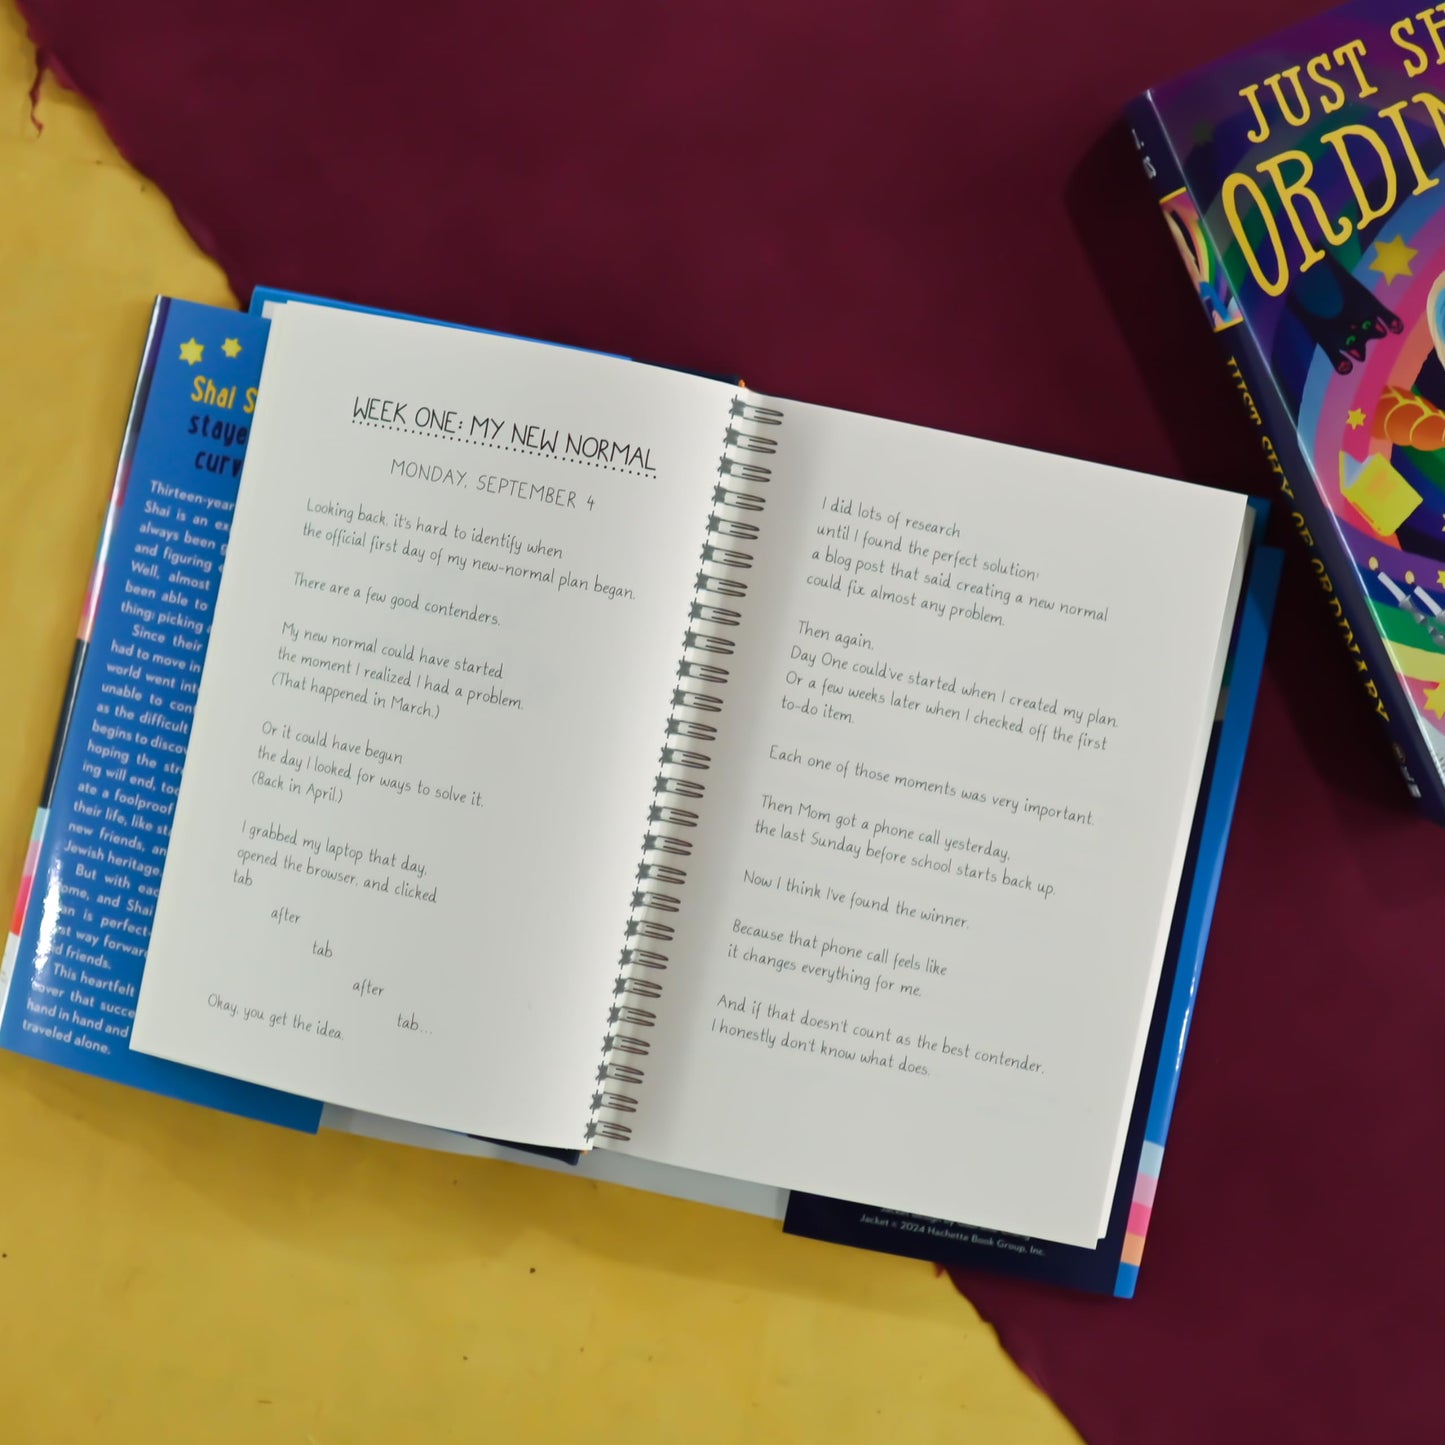 Shai S
staye
curv
Thirteen-year
Shai is an ex
always been g
and figuring
Well, almost
been able to
thing: picking
Since their
had to move in
world went int
unable to con
as the difficult
begins to discov
hoping the str
ing will end, too
ate a foolproof
their life, like st
new friends, an
Jewish heritage.
But with eac
ome, and Shai
an is perfect
st way forwar
d friends.
This heartfelt
over that succe
hand in hand and
traveled alone.
WEEK ONE: MY NEW NORMAL
MONDAY, SEPTEMBER 4
Looking back, it's hard to identify when
the official first day of my new-normal plan began.
There are a few good contenders.
My new normal could have started
the moment I realized I had a problem.
(That happened in March.)
Or it could have begun
the day I looked for ways to solve it.
(Back in April.)
I grabbed my laptop that day,
opened the browser, and clicked
tab
after
tab
after
tab...
Okay, you get the idea.
I did lots of research
until I found the perfect solution:
a blog post that said creating a new normal
could fix almost any problem.
Then again,
Day One could've started when I created my plan.
Or a few weeks later when I checked off the first
to-do item.
Each one of those moments was very important.
Then Mom got a phone call yesterday,
the last Sunday before school starts back up.
Now I think I've found the winner.
Because that phone call feels like
it changes everything for me.
And if that doesn't count as the best contender,
I honestly don't know what does.
Jacket © 2024 Hachette Book Group, Inc.
JUST SH
ORDIN
JUST SHY OF ORDINARY